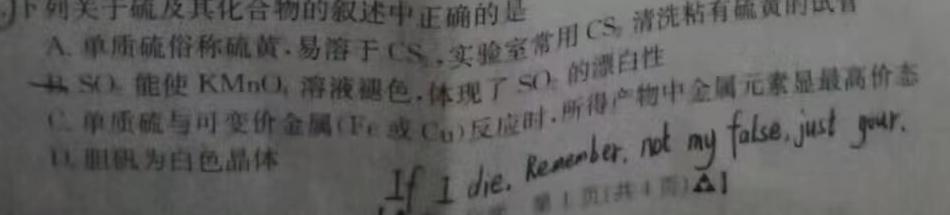 下列关于硫及其化合物的叙述中正确的是
A. 单质硫俗称硫黄,易溶于CS₂,实验室常用CS₂清洗粘有硫黄的试管
B. SO₂能使KMnO₄溶液褪色,体现了SO₂的漂白性
C. 单质硫与可变价金属(Fe或Cu)反应时,所得产物中金属元素显最高价态
D. 胆矾为白色晶体
If I die. Remember. not my false. just your.
第1页(共4页)